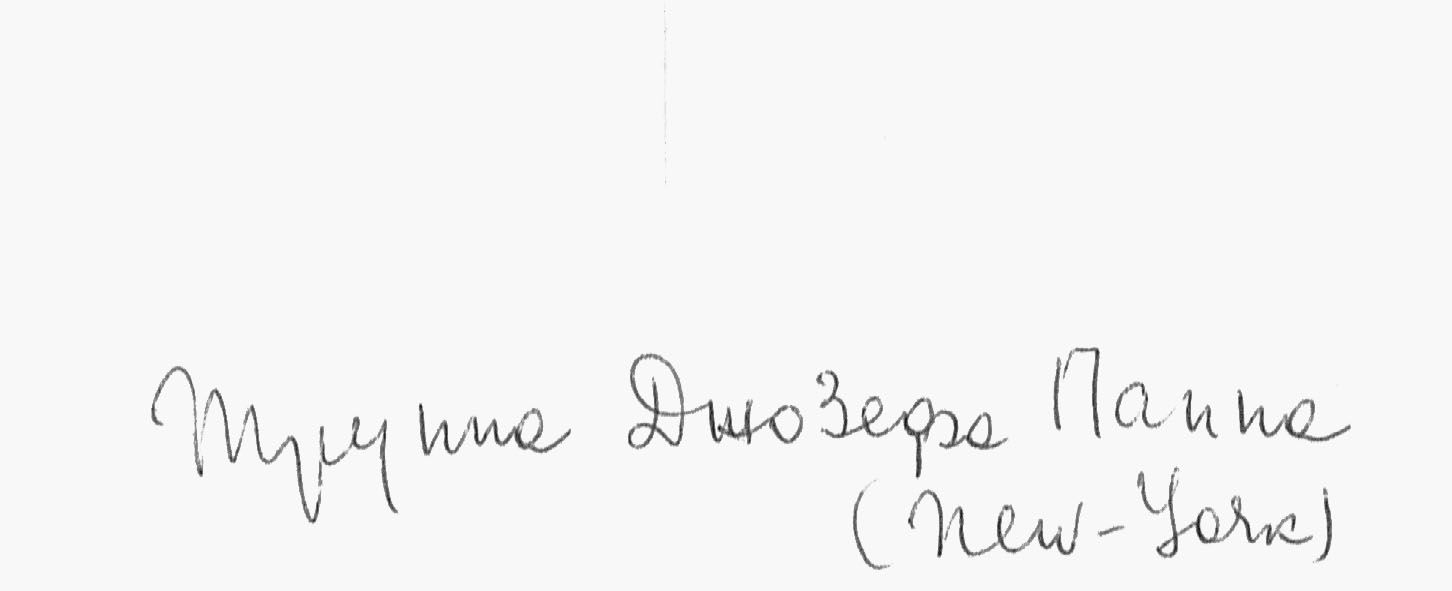 Труппа Джозефа Паппа
(New-York)